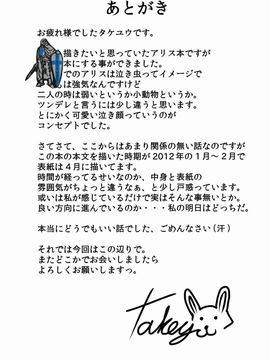 あとがき
お疲れ様でしたタケユウです。
描きたいと思っていたアリス本ですが
本にする事ができました。
でのアリスは泣き虫ってイメージで
は強気なんですけど
二人の時は弱いというか小動物というか。
ツンデレと言うには少し違うと思います。
とにかく可愛い泣き顔っていうのが
コンセプトでした。
さてさて、ここからはあまり関係の無い話なのですが
この本の本文を描いた時期が2012年の1月~2月で
表紙は4月に描いてます。
時間が経ってるせいなのか、中身と表紙の
雰囲気がちょっと違うなぁ、と少し戸惑っています。
或いは私が感じているだけで実はそんな事無いとか。
良い方向に進んでいるのか・・・私の明日はどっちだ。
本当にどうでもいい話でした、ごめんなさい(汗)
それでは今回はこの辺りで。
またどこかでお会いしましたら
よろしくお願いしますっ。
Takeyu